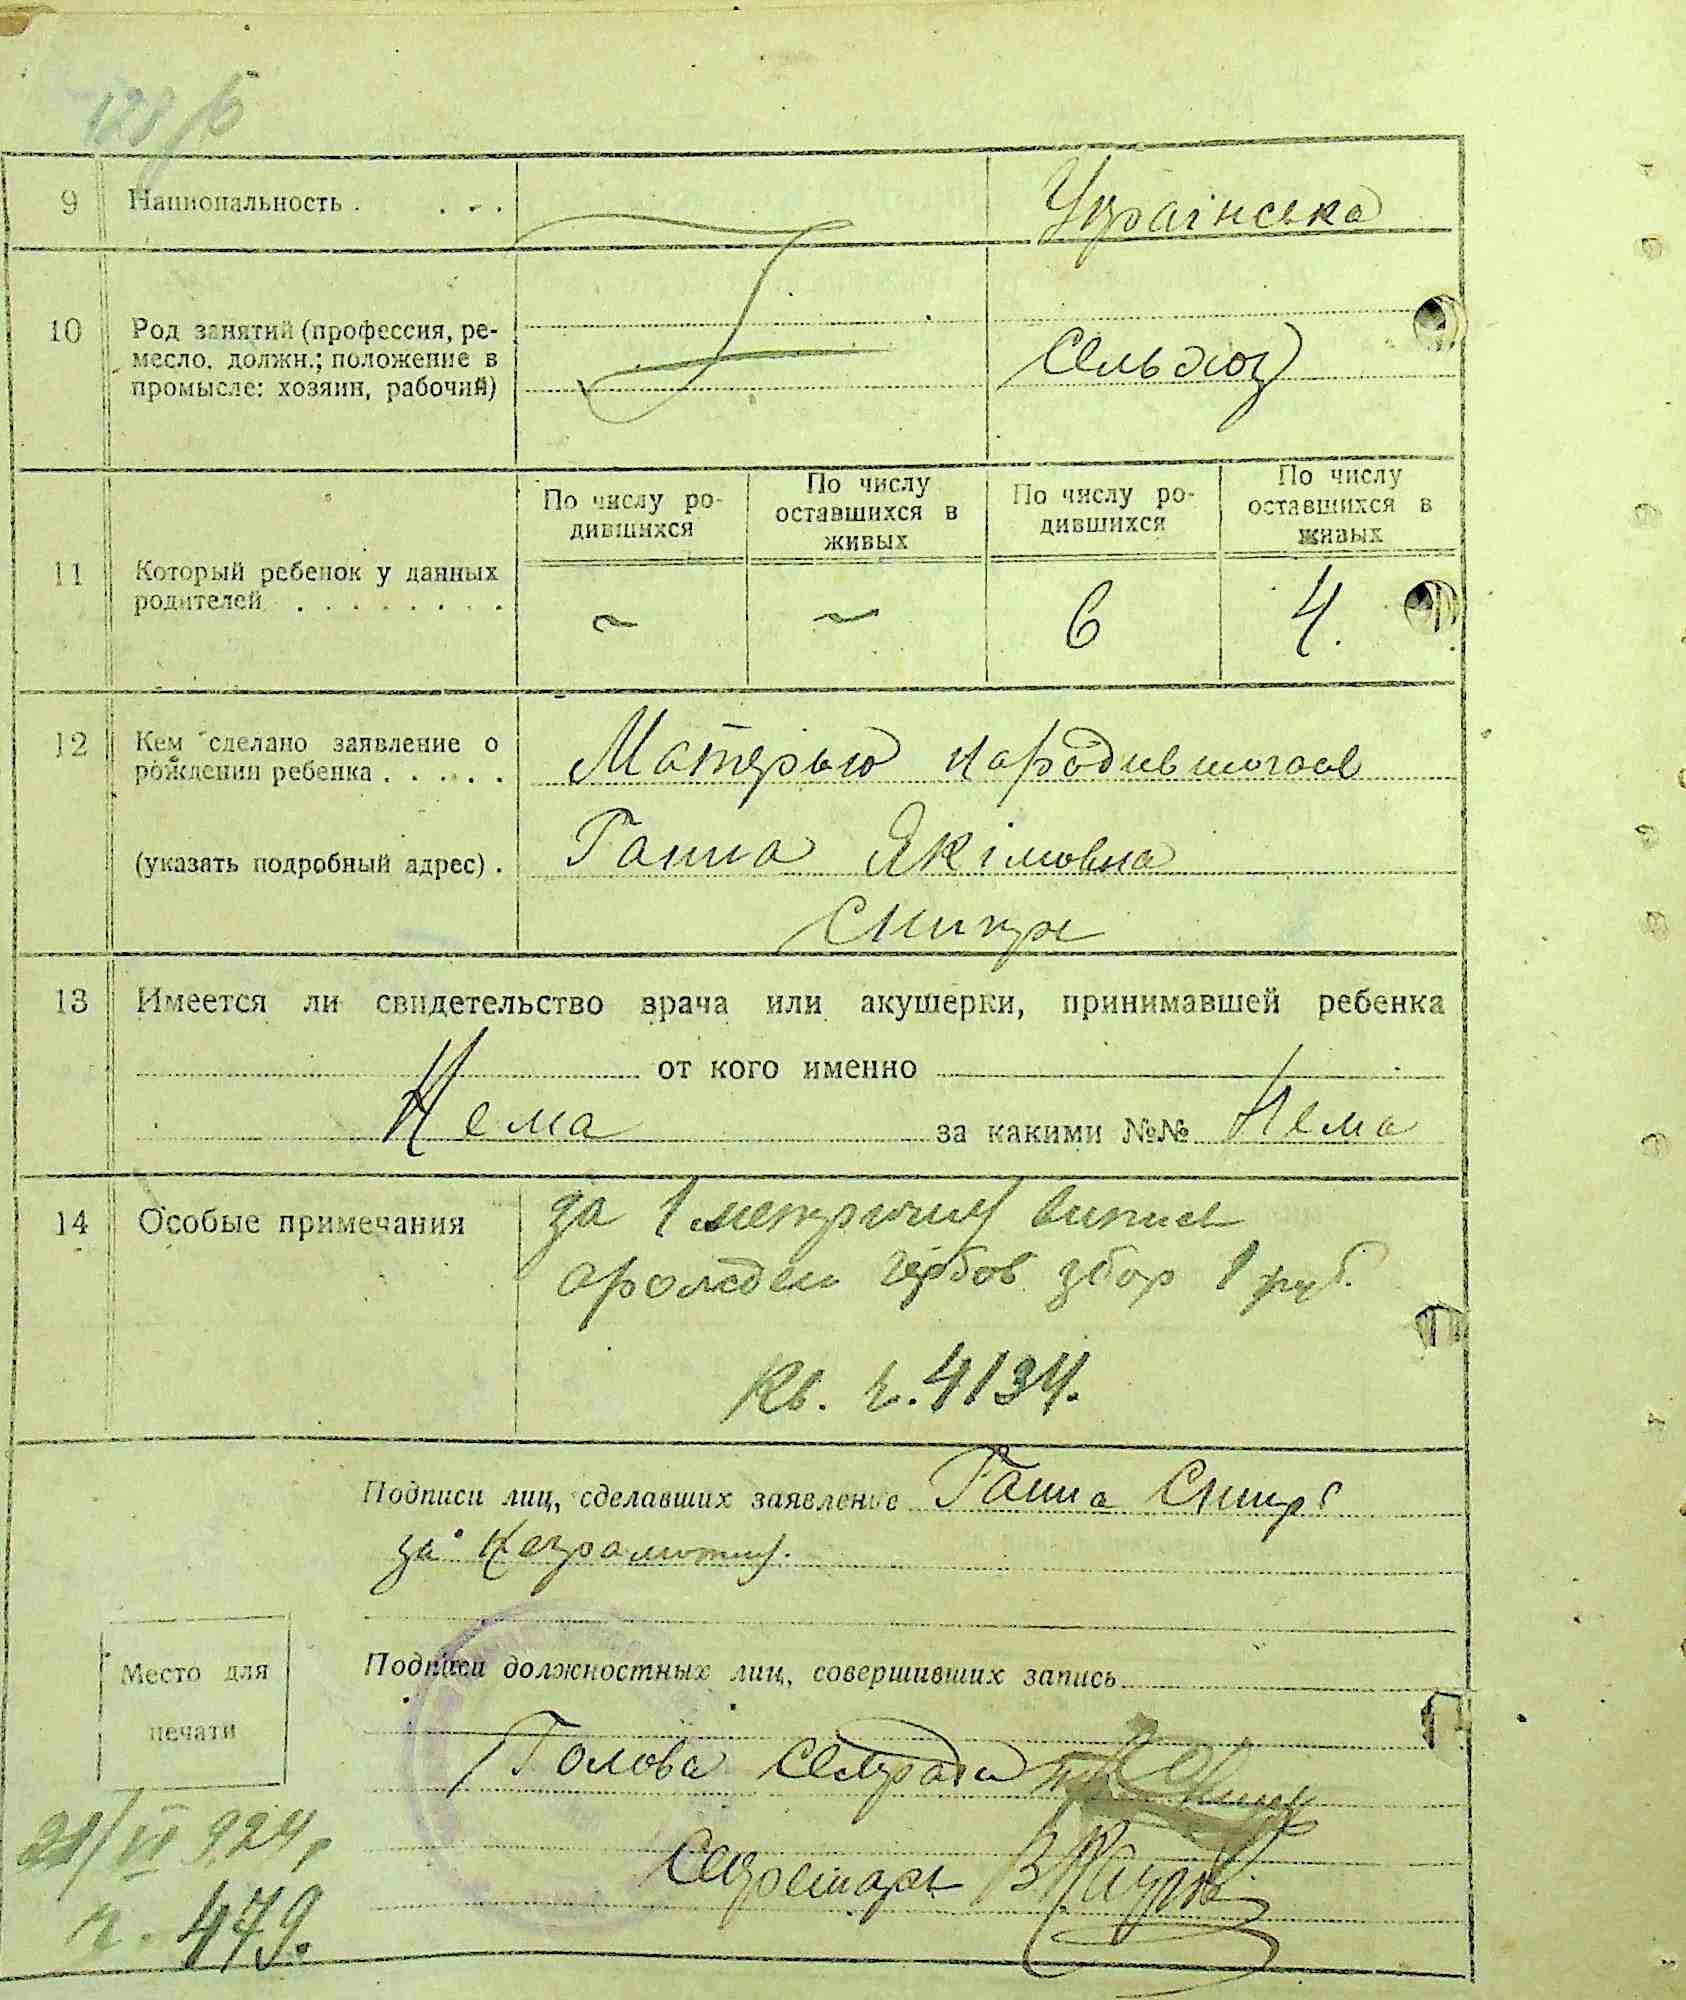 128/б
9 Национальность . . . . Українська
10 Род занятий (профессия, ре-
месло, должн.; положение в
промысле: хозяин, рабочий)
Сельхоз
По числу ро-
дившихся
По числу
оставшихся в
живых
По числу ро-
дившихся
По числу
оставшихся в
живых
11 Который ребенок у данных
родителей . . . . . . . .
~ ~ 6 4.
12 Кем сделано заявление о
рождении ребенка . . . . .
Матерью народившогося
(указать подробный адрес) . Ганна Якімовна
Снипр
13 Имеется ли свидетельство врача или акушерки, принимавшей ребенка
от кого именно
Нема за какими №№ Нема
14 Особые примечания за 1 метричну випись
арожден гербов збор 1 руб.
Кв. ч. 4134.
Подписи лиц, сделавших заявление Ганна Снипр
за неграмотну.
Подписи должностных лиц, совершивших запись
Место для
печати
Голова сельради
Секретарь
21/VI 924 р
ч. 479.